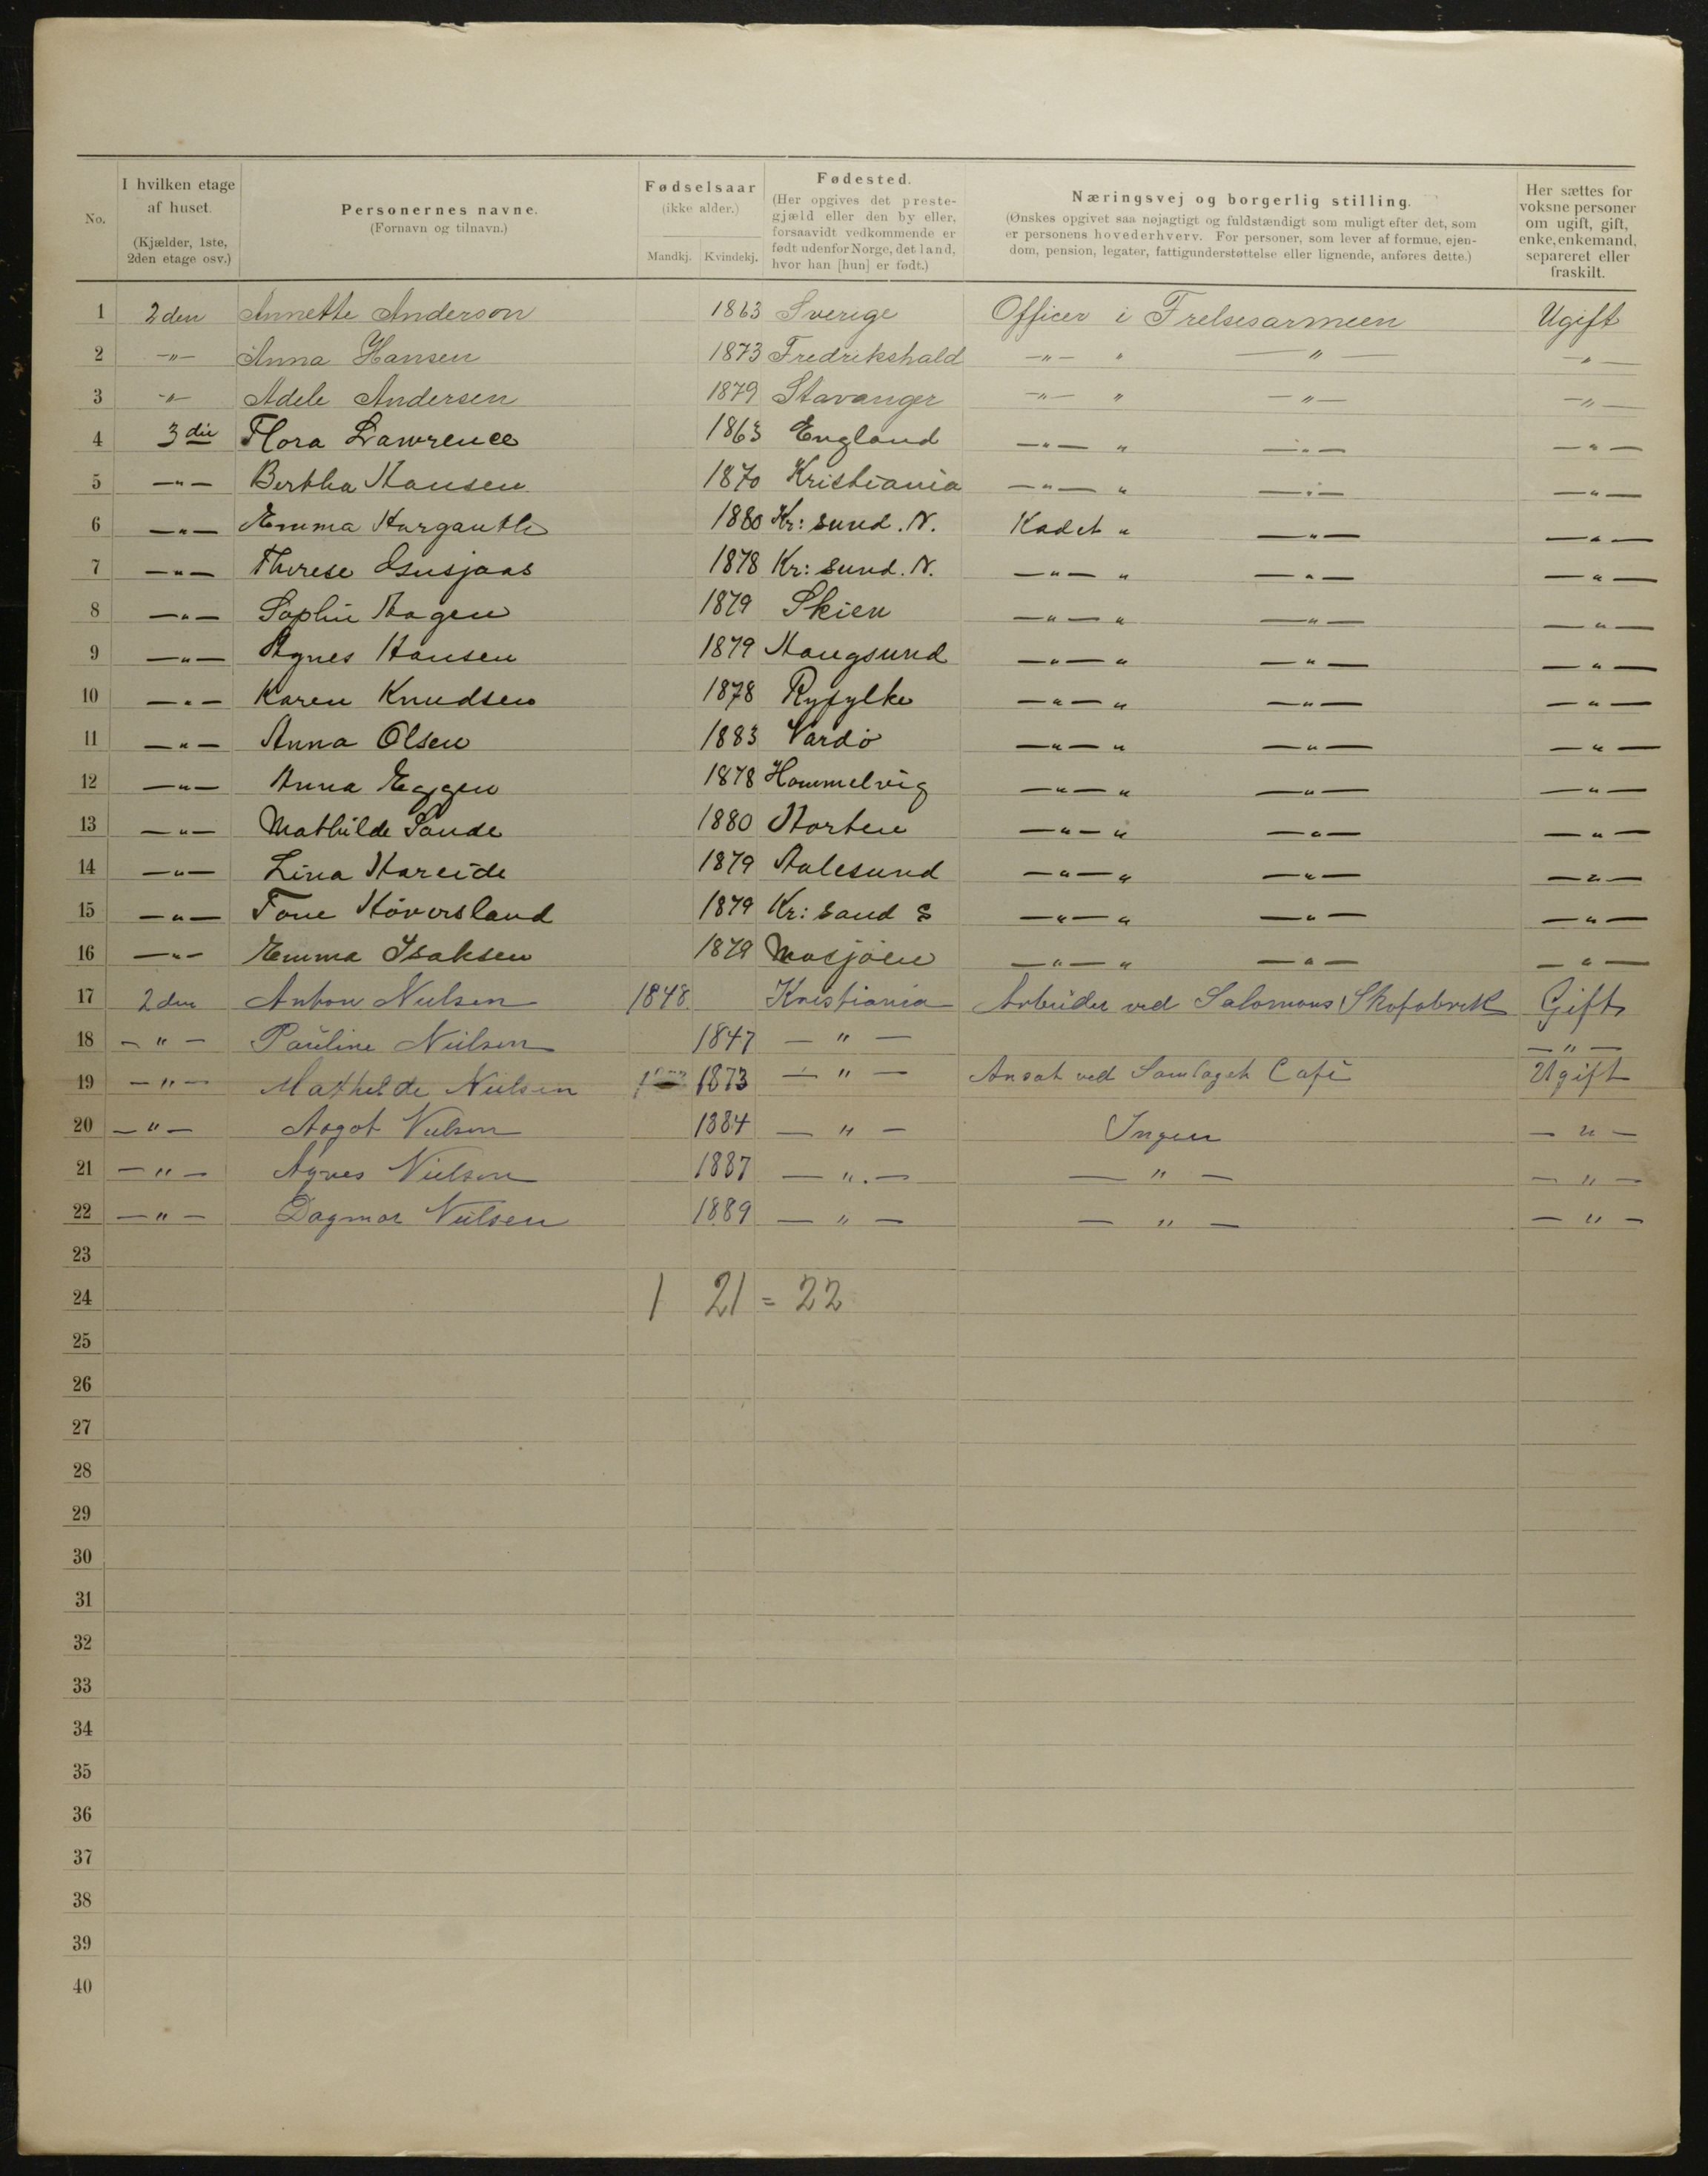 No. I hvilken etage af huset. (Kjælder, 1ste, 2den etage osv.) Personernes navne. (Fornavn og tilnavn.) Fødselsaar (ikke alder.) Mandkj. Kvindekj. Fødested. (Her opgives det prestegjæld eller den by eller, forsaavidt vedkommende er født udenfor Norge, det land, hvor han [hun] er født.) Næringsvej og borgerlig stilling. (Ønskes opgivet saa nøjagtigt og fuldstændigt som muligt efter det, som er personens hovederhverv. For personer, som lever af formue, ejendom, pension, legater, fattigunderstøttelse eller lignende, anføres dette.) Her sættes for voksne personer om ugift, gift, enke, enkemand, separeret eller fraskilt.
1 2den Annette Anderson 1863 Sverige Officer i Frelsesarmeen Ugift
2 -"- Anna Hansen 1873 Fredrikshald -"- " -"- -"-
3 -"- Adele Andersen 1879 Stavanger -"- " -"- -"-
4 3die Flora Lawrence 1863 England -"- " -"- -"-
5 -"- Bertha Hansen 1870 Kristiania -"- " -"- -"-
6 -"- Emma 1880 Kr: sund. N. Kadet " -"- -"-
7 -"- Therese Gusjaas 1878 Kr: sund. N. -"- " -"- -"-
8 -"- Sophie Hagen 1879 Skien -"- " -"- -"-
9 -"- Agnes Hansen 1879 Haugsund -"- " -"- -"-
10 -"- Karen Knudsen 1878 Ryfylke -"- " -"- -"-
11 -"- Anna Olsen 1883 Vardö -"- " -"- -"-
12 -"- Anna Eggen 1878 Hommelvig -"- " -"- -"-
13 -"- Mathilde Sande 1880 Horten -"- " -"- -"-
14 -"- Lina Hareide 1879 Aalesund -"- " -"- -"-
15 -"- Tone Höversland 1879 Kr: sand S -"- " -"- -"-
16 -"- Emma Isaksen 1879 Mosjöen -"- " -"- -"-
17 2den Anton Nielsen 1848 Kristiania Arbeider ved Salomons Skofabrik Gift
18 -"- Pauline Nielsen 1847 -"- -"-
19 -"- Mathilde Nielsen 1873 -"- Ansat ved Samlaget Café Ugift
20 -"- Aagot Nielsen 1884 -"- Ingen -"-
21 -"- Agnes Nielsen 1887 -"- -"- -"-
22 -"- Dagmar Nielsen 1889 -"- -"- -"-
23
24 1 21 = 22
25
26
27
28
29
30
31
32
33
34
35
36
37
38
39
40